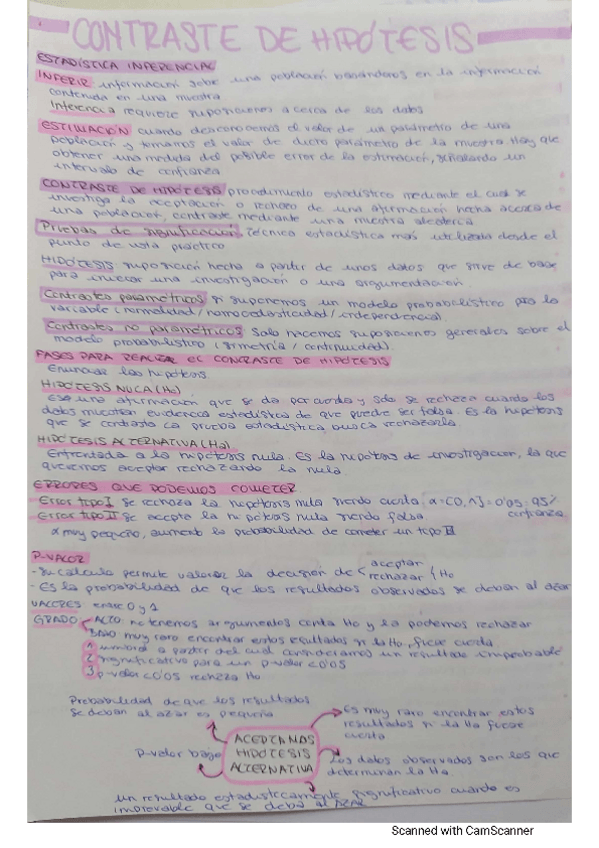 CONTRASTE DE HIPÓTESIS
ESTADÍSTICA INFERENCIAL
INFERIR información sobre una población basándonos en la información
contenida en una muestra
Inferencia requiere suposiciones acerca de los datos
ESTIMACIÓN cuando desconocemos el valor de un parámetro de una
población y tomamos el valor de dicho parámetro de la muestra. Hay que
obtener una medida del posible error de la estimación, señalando un
intervalo de confianza
CONTRASTE DE HIPÓTESIS procedimiento estadístico mediante el cual se
investiga la aceptación o rechazo de una afirmación hecha acerca de
una población, contraste mediante una muestra aleatoria
Pruebas de significación. Técnica estadística más utilizada desde el
punto de vista práctico
HIPÓTESIS suposición hecha a partir de unos datos que sirve de base
para iniciar una investigación o una argumentación.
Contrastes paramétricos si suponemos un modelo probabilístico pra la
variable (normalidad/homocedasticidad/independencia).
Contrastes no paramétricos solo hacemos suposiciones generales sobre el
modelo probabilístico (simetría/continuidad).
FASES PARA REALIZAR EL CONTRASTE DE HIPÓTESIS
Enunciar las hipótesis
HIPÓTESIS NULA (H0)
Es una afirmación que se da por cierta y solo se rechaza cuando los
datos muestran evidencia estadística de que puede ser falsa. Es la hipótesis
que se contrasta la prueba estadística busca rechazarla
HIPÓTESIS ALTERNATIVA (Ha)
Enfrentada a la hipótesis nula. Es la hipótesis de investigación, la que
queremos aceptar rechazando la nula
ERRORES QUE PODEMOS COMETER
Error tipo I Se rechaza la hipótesis nula siendo cierta, α=[0,1]=0'05: 95%
confianza
Error tipo II se acepta la hipótesis nula siendo falsa.
α muy pequeño, aumenta la probabilidad de cometer un tipo II
P-VALOR
- Su cálculo permite valorar la decisión de < aceptar
rechazar { H0
- Es la probabilidad de que los resultados observados se deban al azar
VALORES entre 0 y 1
GRADO < ALTO: no tenemos argumentos contra H0 y la podemos rechazar
BAJO muy raro encontrar estos resultados si la H0, fuese cierta
1 umbral a partir del cual consideramos un resultado improbable
2 significativo para un p-valor <0'05
3 p-valor <0'05 rechaza H0
Probabilidad de que los resultados
se deban al azar es pequeña
Es muy raro encontrar estos
resultados si la H0 fuese
cierta
ACEPTAMOS
HIPÓTESIS
ALTERNATIVA
P-valor bajo
Los datos observados son los que
determinan la Ha.
un resultado estadísticamente significativo cuando es
improbable que se deba al AZAR
Scanned with CamScanner